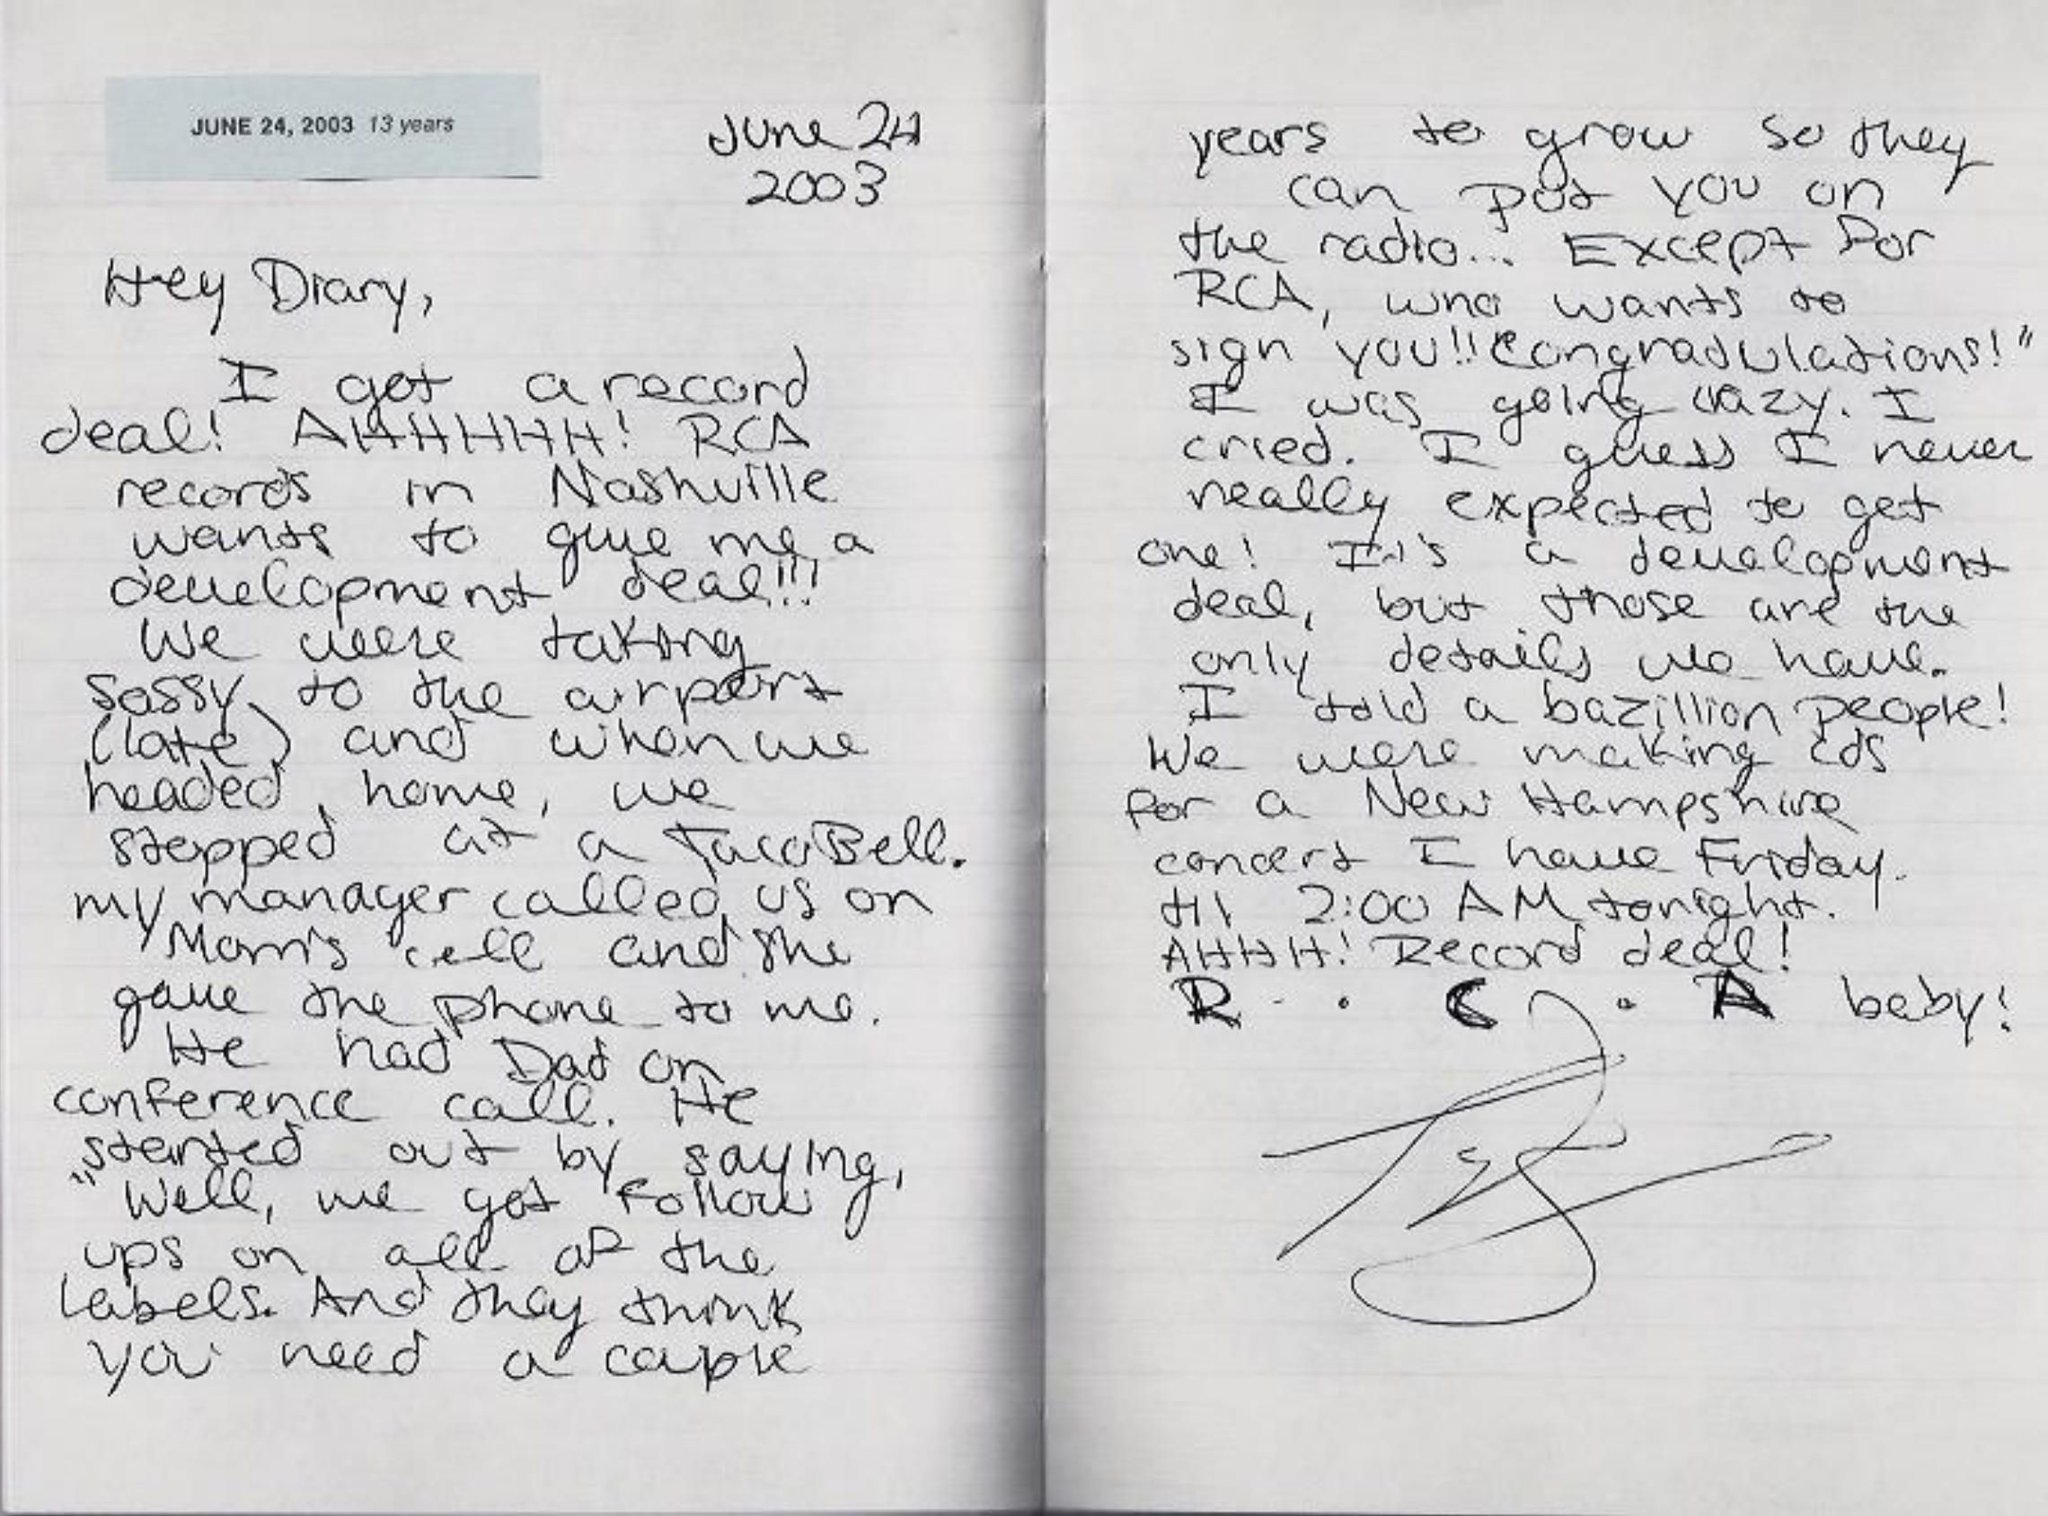 JUNE 24, 2003 13 years
June 24
2003
Hey Diary,
I got a record
deal! AHHHHH! RCA
records in Nashville
wants to give me a
development deal!!!
We were taking
Sassy to the airport
(late) and when we
headed home, we
stopped at a Taco Bell.
my manager called us on
Mom's cell and she
gave the phone to me.
He had Dad on
conference call. He
started out by saying,
"Well, we got follow
ups on all of the
labels. And they think
you need a couple
years to grow so they
can put you on
the radio... Except for
RCA, who wants to
sign you!! Congradulations!"
I was going crazy. I
cried. I guess I never
really expected to get
one! It's a development
deal, but those are the
only details we have.
I told a bazillion people!
We were making cds
for a New Hampshire
concert I have Friday.
til 2:00 AM tonight.
AHHH! Record deal!
R · C · A beby!